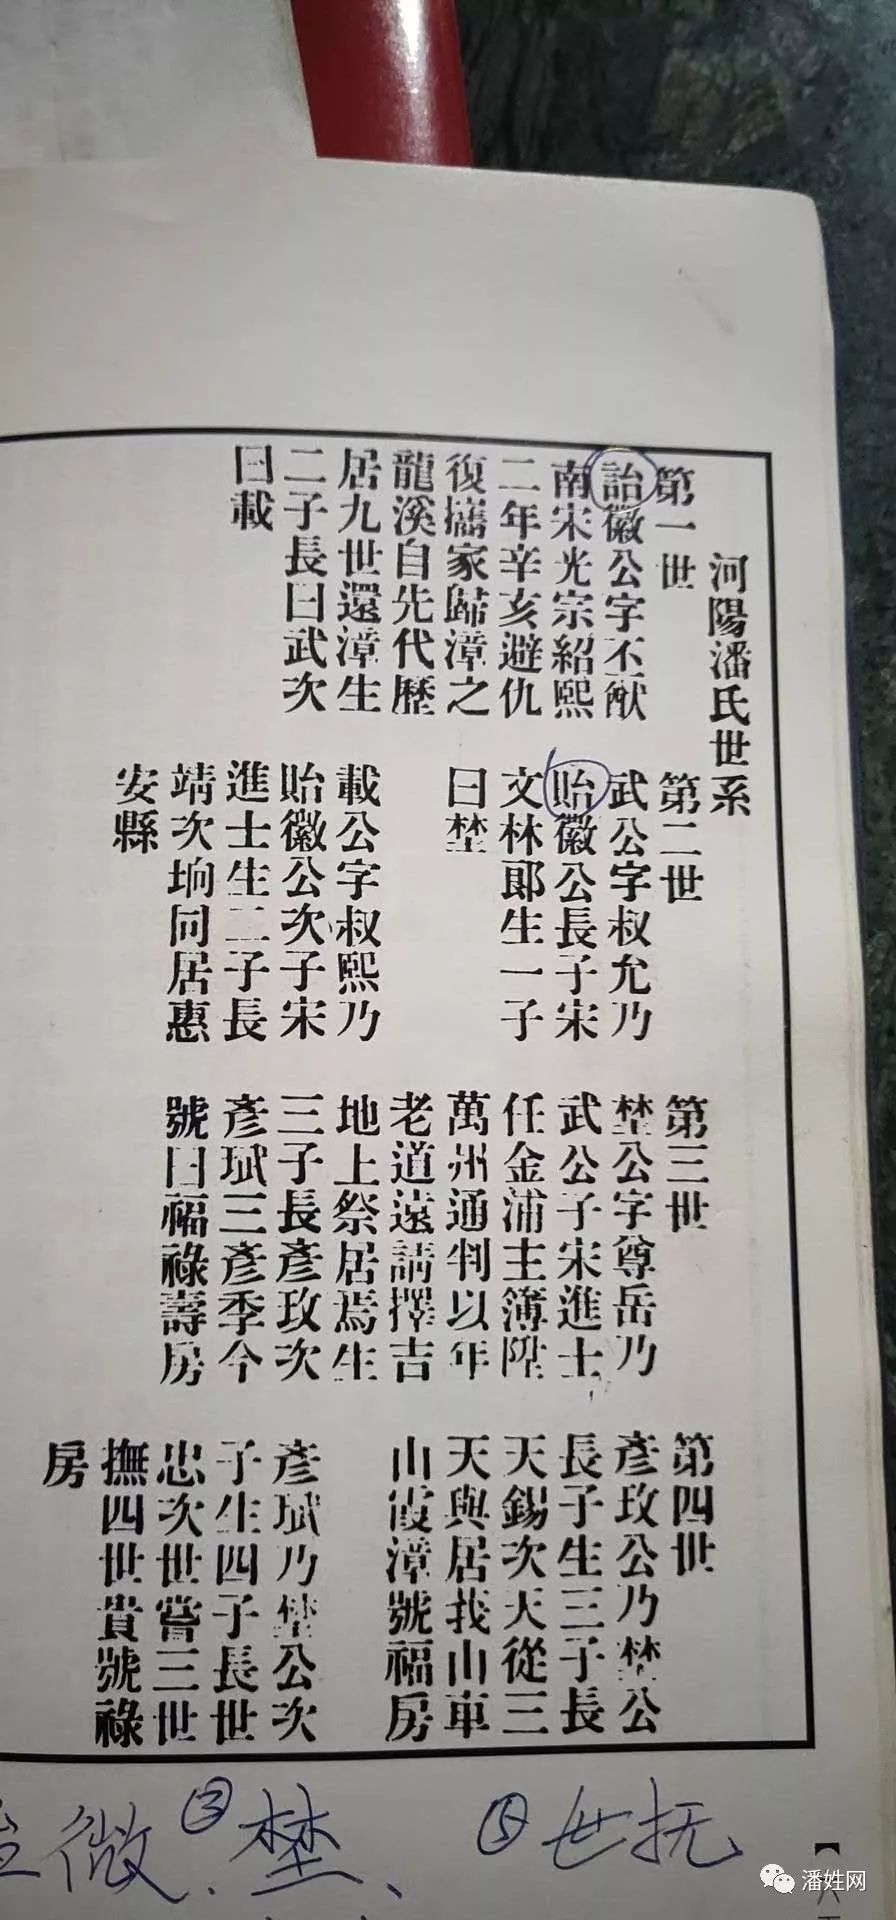 河陽潘氏世系
第一世
詒徽公字不猷
南宋光宗紹熙
二年辛亥避仇
復攜家歸漳之
龍溪自先代歷
居九世還漳生
二子長曰武次
曰載
第二世
武公字叔允乃
貽徽公長子宋
文林郎生一子
曰埜
載公字叔熙乃
貽徽公次子宋
進士生二子長
靖次垧同居惠
安縣
第三世
埜公字尊岳乃
武公子宋進士
任金浦主簿陞
萬州通判以年
老道遠請擇吉
地上祭居焉生
三子長彥玫次
彥珷三彥季今
號曰福祿壽房
第四世
彥玫公乃埜公
長子生三子長
天錫次天從三
天與居我山車
山霞漳號福房
彥珷乃埜公次
子生四子長世
忠次世嘗三世
撫四世貴號祿
房
微、③埜、 ⑤世抚
潘姓网